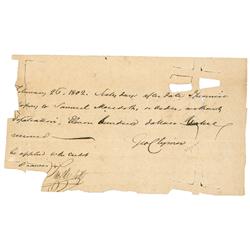 February 26. 1802. Sixty days after date I promise
to pay to Samuel Meredith, or Order, without
defalcation, Eleven hundred dollars Value
received
Geo Clymer
be applied to the credit